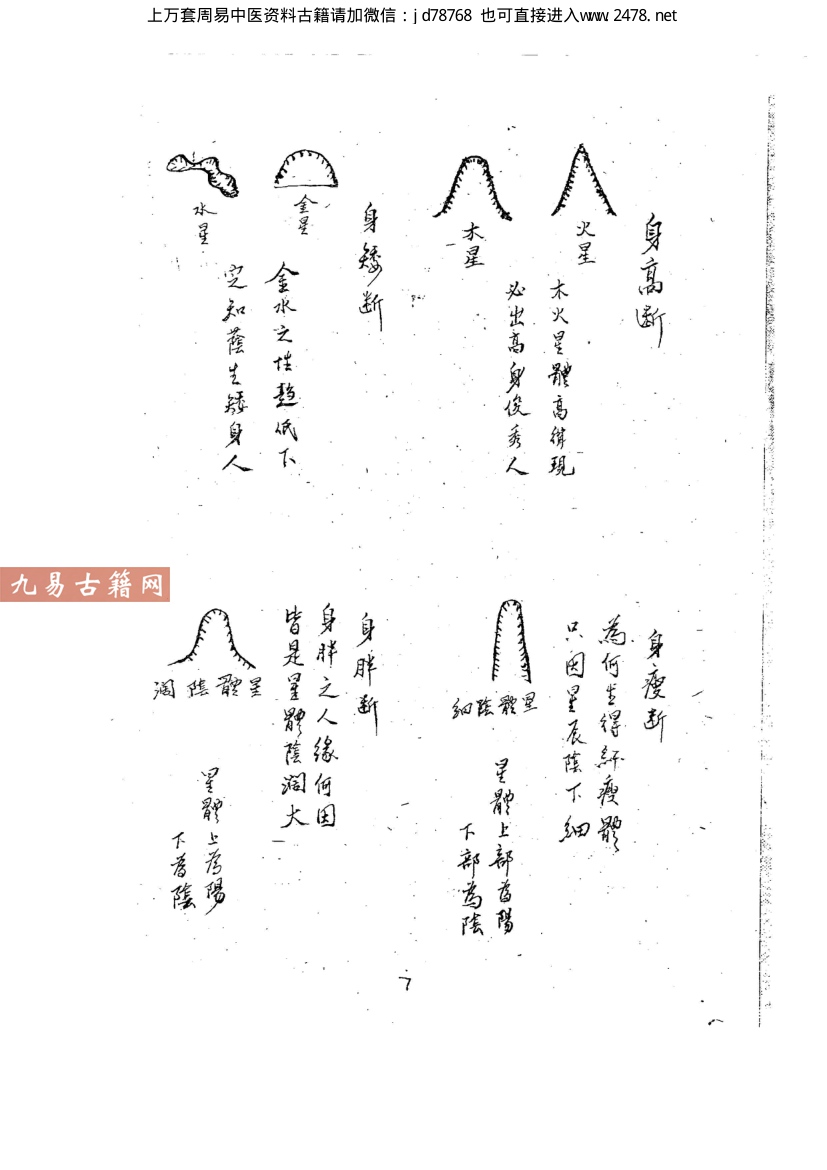 上万套周易中医资料古籍请加微信：jd78768 也可直接进入www.2478.net
身高断
火星
木星
木火星體高聳現
必出高身俊秀人
身矮断
金星
水星
金水之性趋低下
定知蔭生矮身人
身瘦断
為何生得纤瘦體
只因星辰陰下细
星體陰细
星體上部為陽
下部為陰
身胖断
身胖之人缘何因
皆是星體陰濶大
星體陰濶
星體上為陽
下為陰
九易古籍网
7